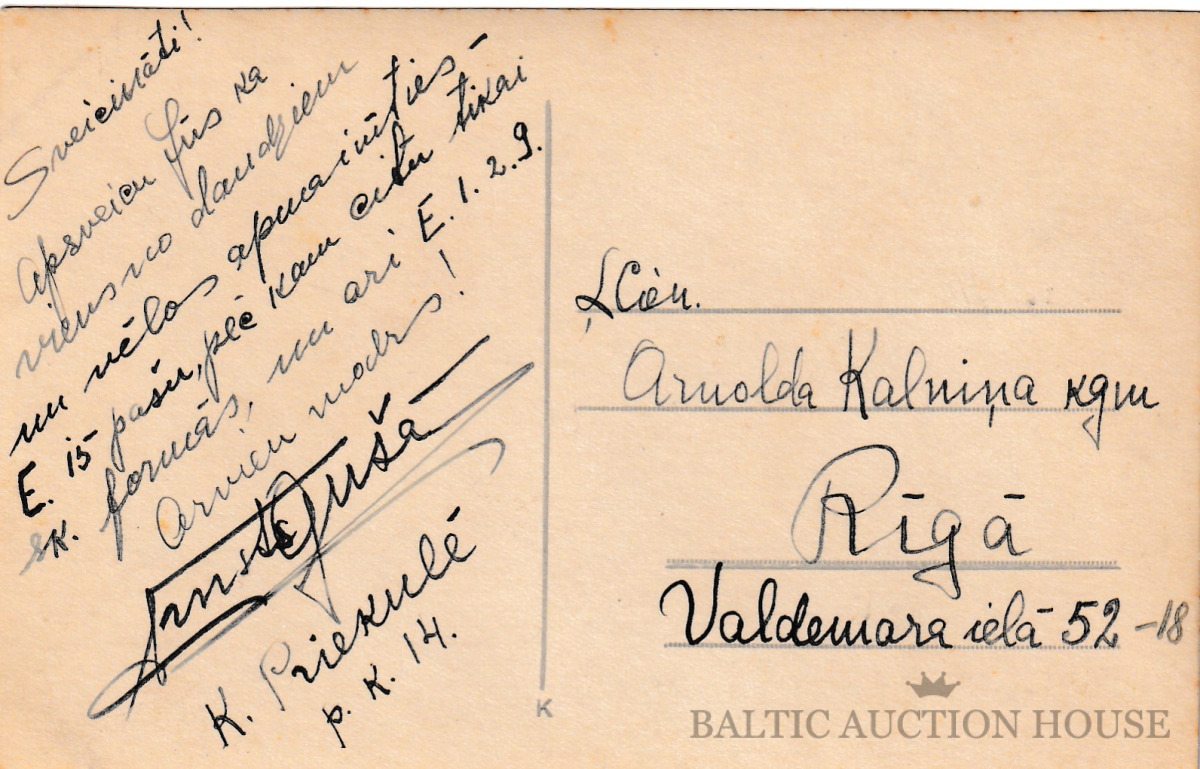 Sveicināti!
Apsveicu Jūs ka
vienu no daudziem
un vēlos apmainīties
E. 15 pašu, pēc kam citu tikai
sk. formās, un arī E. 1. 2. 9.
Arvien modrs!
K. Priekulē
p. k. 14.
Ļ. Cien.
Arnolda Kalniņa kgm
Rīgā
Valdemara ielā 52 -18
K
BALTIC AUCTION HOUSE